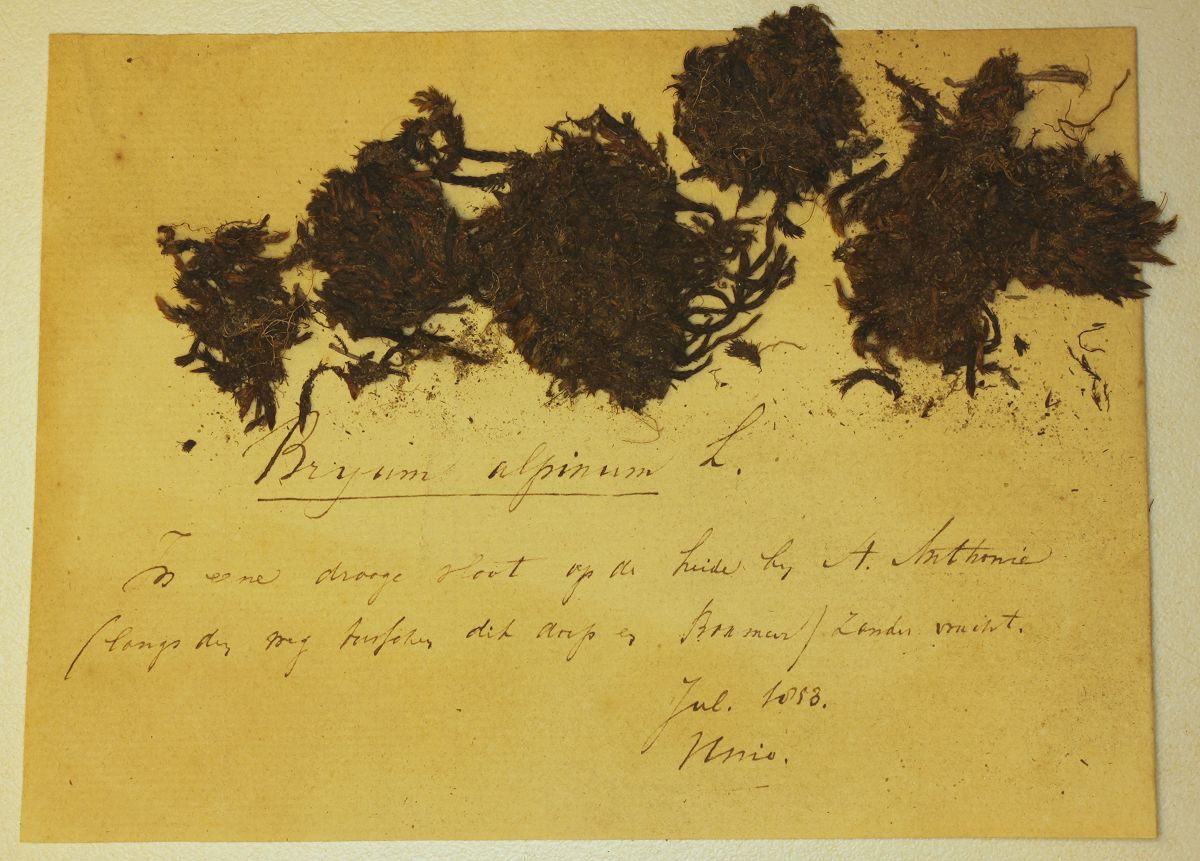 Bryum alpinum L.
In eene drooge sloot op de heide by A. Anthonie
(langs den weg tusschen dit dorp en Boxmeer) zonder vrucht.
Jul. 1853.